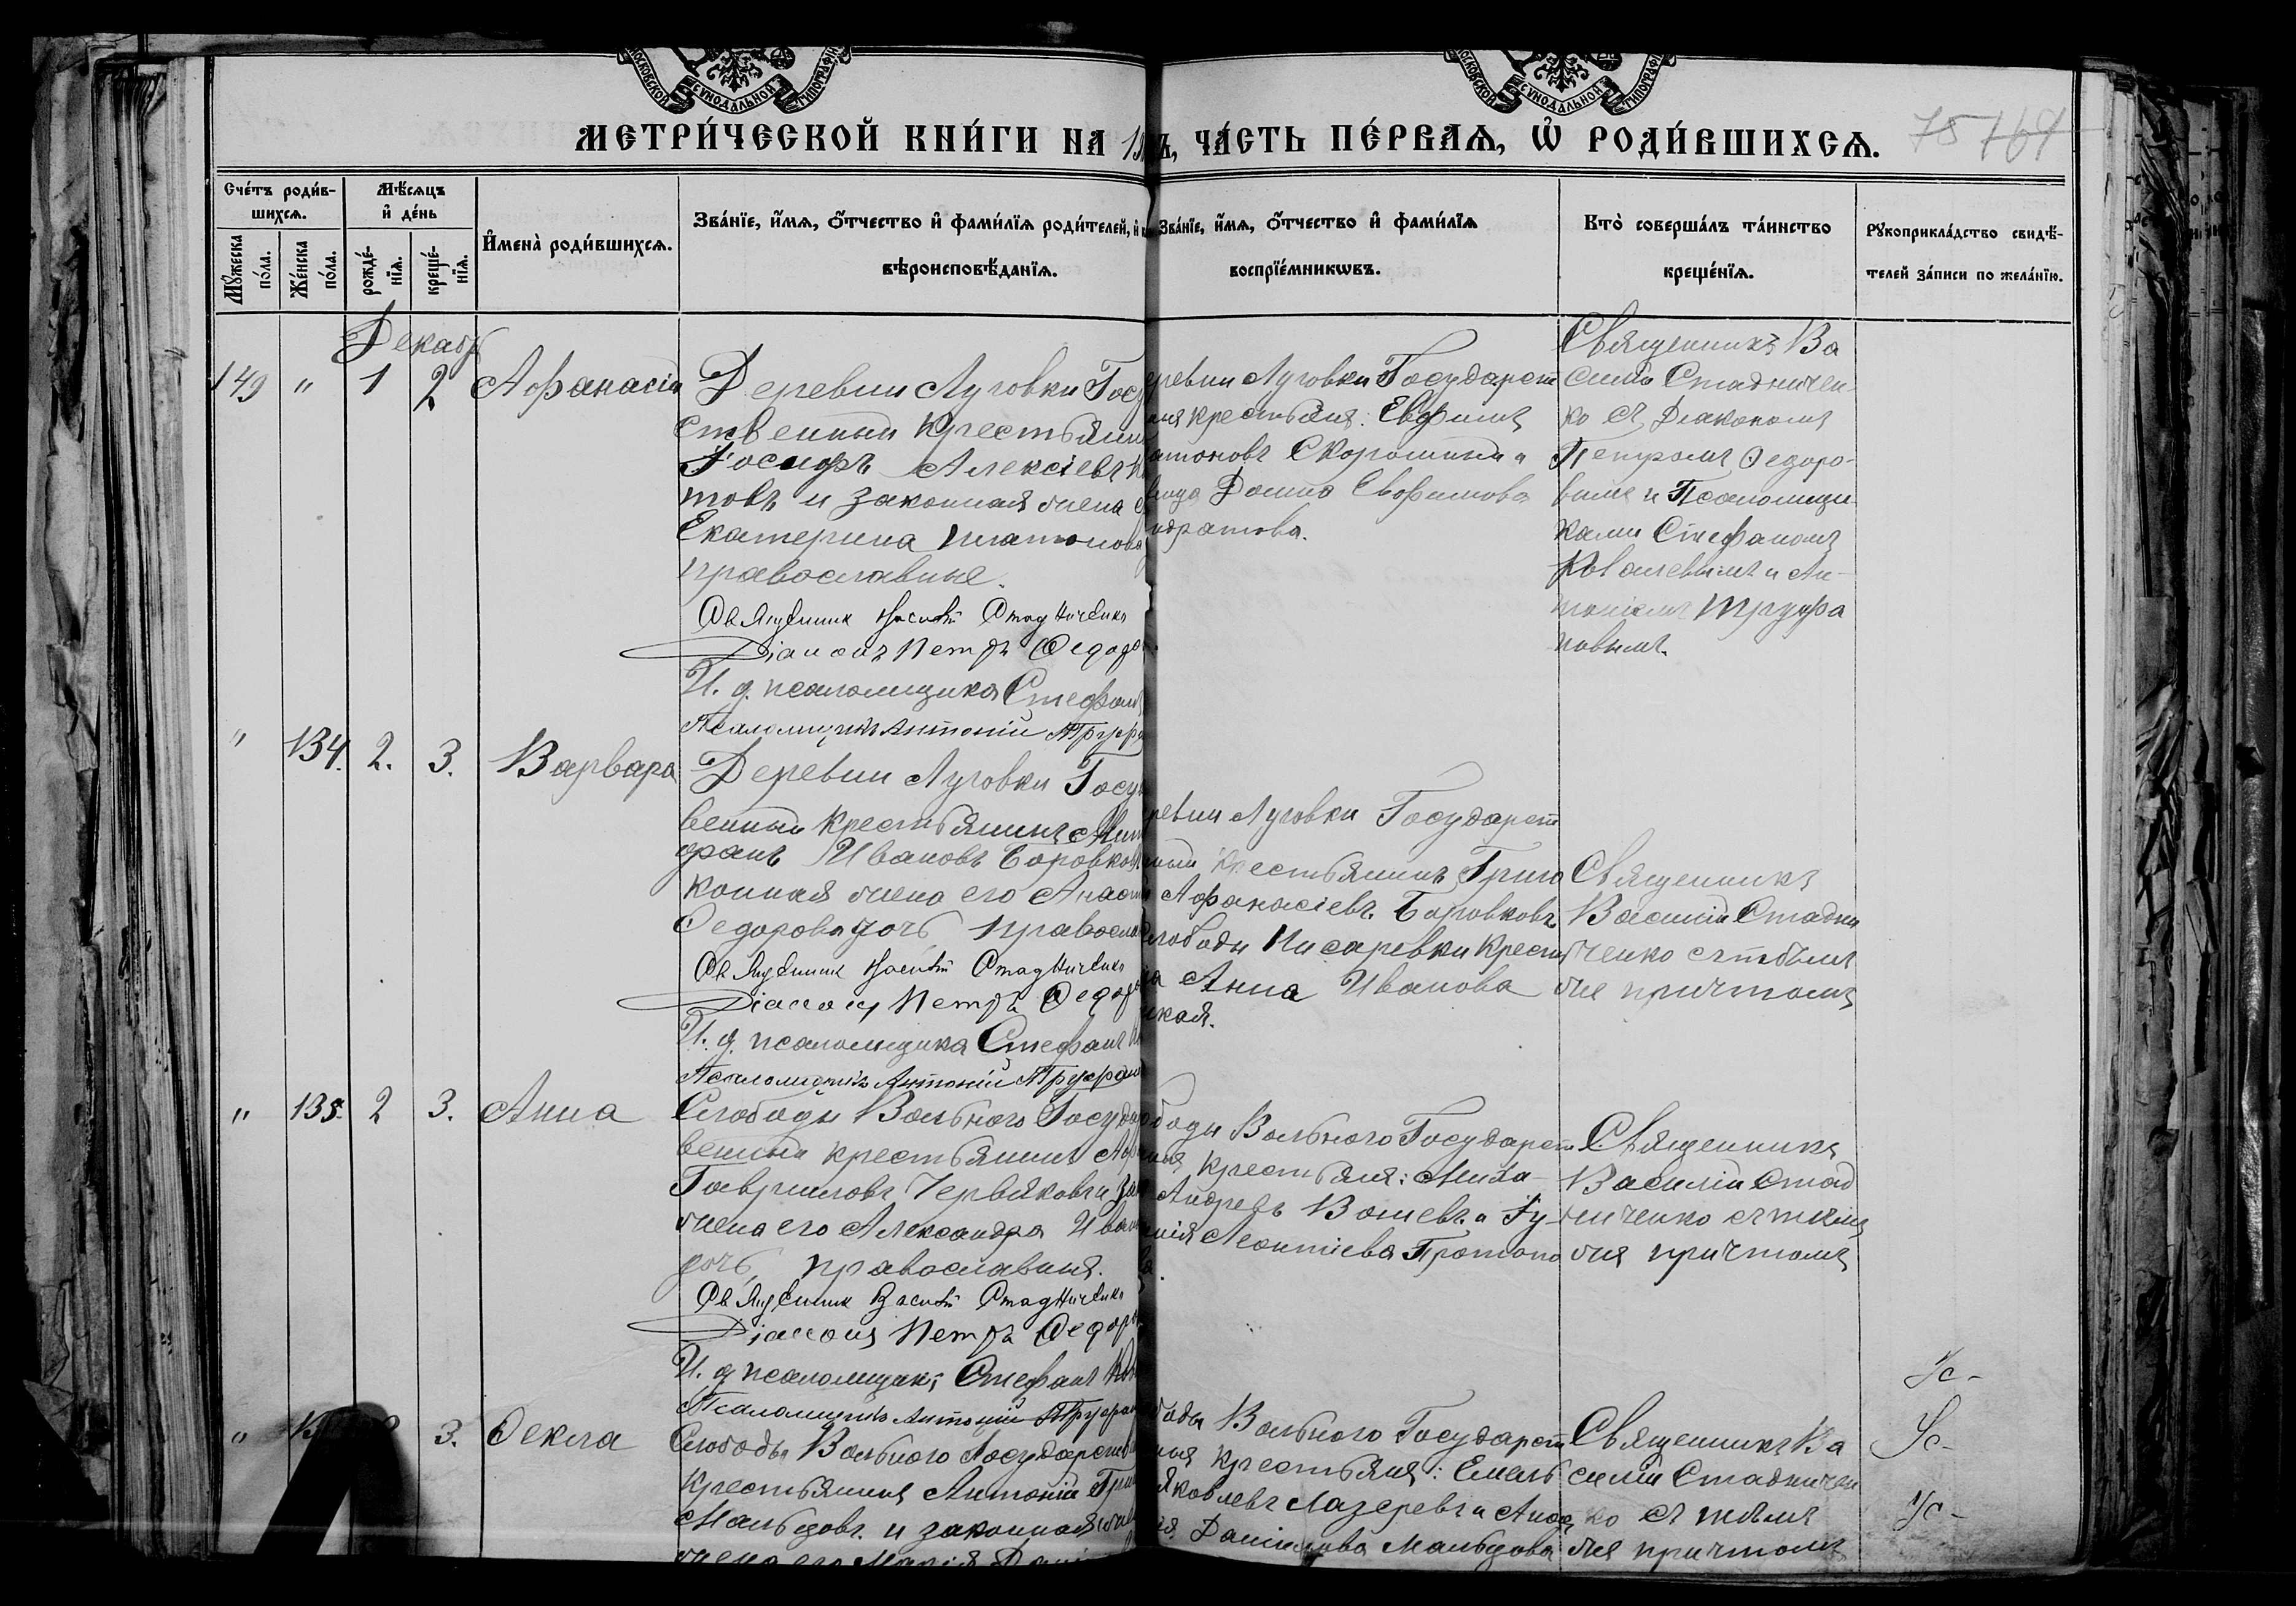 МОСКОВСКОЙ СУНОДАЛЬНОЙ ТИПОГРАФІИ
МОСКОВСКОЙ СУНОДАЛЬНОЙ ТИПОГРАФІИ
МЕТРИ́ЧЕСКОЙ КНИ́ГИ НА 18
Ъ, ЧА́СТЬ ПЕ́РВАЯ, Ѡ҆ РОДИ́ВШИХСѦ.
75 164
Сче́тъ роди́в-
шихсѧ.
Мѣ́сѧцъ
и҆ де́нь
Мꙋ́жеска
по́ла.
Же́нска
по́ла.
рожде́-
нїѧ.
креще́-
нїѧ.
И҆мена̀ роди́вшихсѧ.
Зва́нїе, и҆́мѧ, ѻ҆́тчество и҆ фами́лїѧ роди́телей, и҆
вѣроисповѣ́данїѧ.
Зва́нїе, и҆́мѧ, ѻ҆́тчество и҆ фами́лїѧ
воспрїе́мникѡвъ.
Кто̀ соверша́лъ та́инство
креще́нїѧ.
Рꙋкоприкла́дство свидѣ́-
телей за́писи по жела́нїю.
Декабр
149 " 1 2 Афанасій
Деревни Луговки Госу
ственный крестьянин
Іосифъ Алексіевъ К
товъ и законная жена е
Екатерина Платонова
православные.
Священник Василій Стадниченко
Діаконъ Петръ Федоро
И. д. псаломщика Стефанъ
Псаломщикъ Антоній Труфа
еревни Луговки Государст
ныя крестьяня: Евфимъ
атоновъ Скорошинъ и
вица Домна Евфимова
ндратова.
Священникъ Ва
силій Стадничен-
ко съ Діакономъ
Петромъ Федоро-
вымъ и Псаломщи-
ками Стефаномъ
Ковалевымъ и Ан-
тоніемъ Труфа
новымъ.
" 134. 2. 3. Варвара
Деревни Луговки Госуд
венный крестьянинъ Мит
фанъ Ивановъ Боровковъ
конная жена его Анаст
Федорова дочь, правосла
Священник Василій Стадниченко
Діаконъ Петръ Федоро
И. д. псаломщика Стефанъ
Псаломщикъ Антоній Труфан
ревни Луговки Государст
ный крестьянинъ Григо
Афанасіевъ Боровковъ
лободы Писаревки крест
ка Анна Иванова
ская.
Священникъ
Василій Стадни
ченко съ тѣмъ
же причтомъ
" 135. 2 3. Анна
Слободы Вольного Государ
венный крестьянинъ Афа
Гавриловъ Червяковъ и зак
жена его Александра Иван
дочь, православныя.
Священник Василій Стадниченко
Діаконъ Петръ Федоро
И. д. псаломщика Стефанъ Ков
Псаломщикъ Антоній Труфан
боды Вольного Государст
ныя крестьяня: Миха
Андреевъ Вошевъ и Ту-
нія Леонтіева Протопо
ва.
Священникъ
Василій Стад
ниченко съ тѣмъ
же причтомъ
" 3. Фекла
Слободы Вольного Государств
крестьянинъ Антоній Григ
Мальцовъ и законная
жена его Марія Дани
боды Вольного Государст
ныя крестьяня: Емель
Яковлевъ Лазеревъ и Анас
ія Данилова Мальцова
Священникъ Ва
силій Стадничен
ко съ тѣмъ
же причтомъ